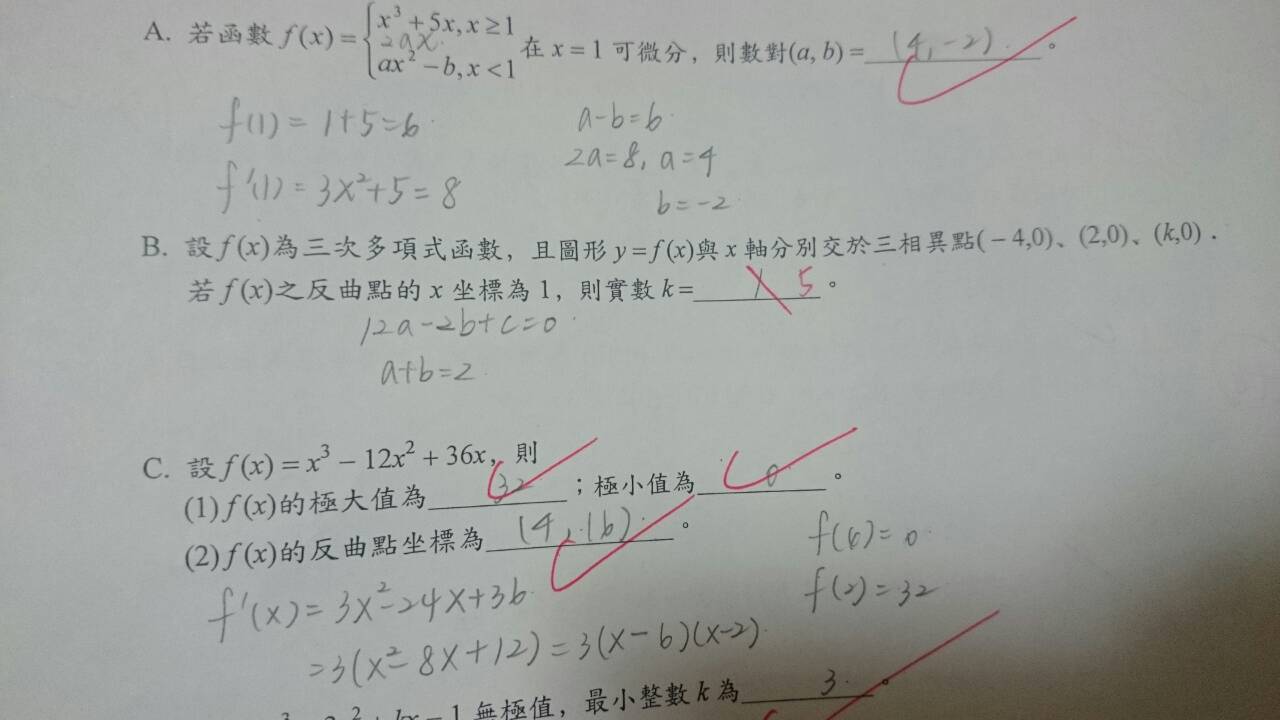 A. 若函數 f(x) = { x³ + 5x, x ≥ 1
2ax
ax² − b, x < 1 在 x = 1 可微分，則數對(a, b) = (4, -2) 。
f(1) = 1+5=6
a-b=6
f'(1) = 3x²+5 = 8
2a=8, a=4
b=-2
B. 設 f(x)為三次多項式函數，且圖形 y = f(x)與 x 軸分別交於三相異點(−4,0)、(2,0)、(k,0)．
若 f(x)之反曲點的 x 坐標為 1，則實數 k = 5 。
12a-2b+c=0
a+b=2
C. 設 f(x) = x³ − 12x² + 36x，則
(1) f(x)的極大值為 32 ；極小值為 0 。
(2) f(x)的反曲點坐標為 (4, 16) 。
f(6)=0
f'(x) = 3x²-24x+36
f(2)=32
=3(x²-8x+12) = 3(x-6)(x-2)
kx − 1 無極值，最小整數 k 為 3 。